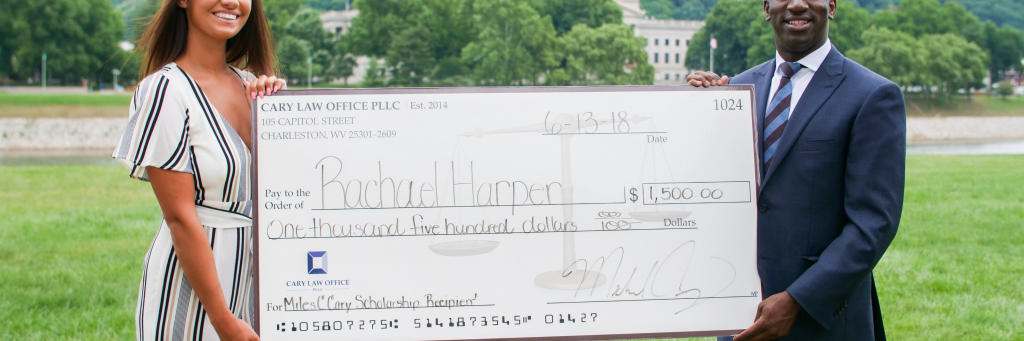 CARY LAW OFFICE PLLC | Est. 2014
1024
105 CAPITOL STREET
CHARLESTON, WV 25301-2609
6-13-18
Date
Pay to the
Order of Rachael Harper $ 1,500 00
One thousand five hundred dollars 00/100 Dollars
CARY LAW OFFICE
PLLC
For Miles C. Cary Scholarship Recipient
⑆105807275⑆ 5141873545⑈ 01427